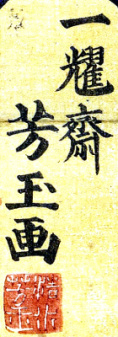 一耀齋
芳玉画